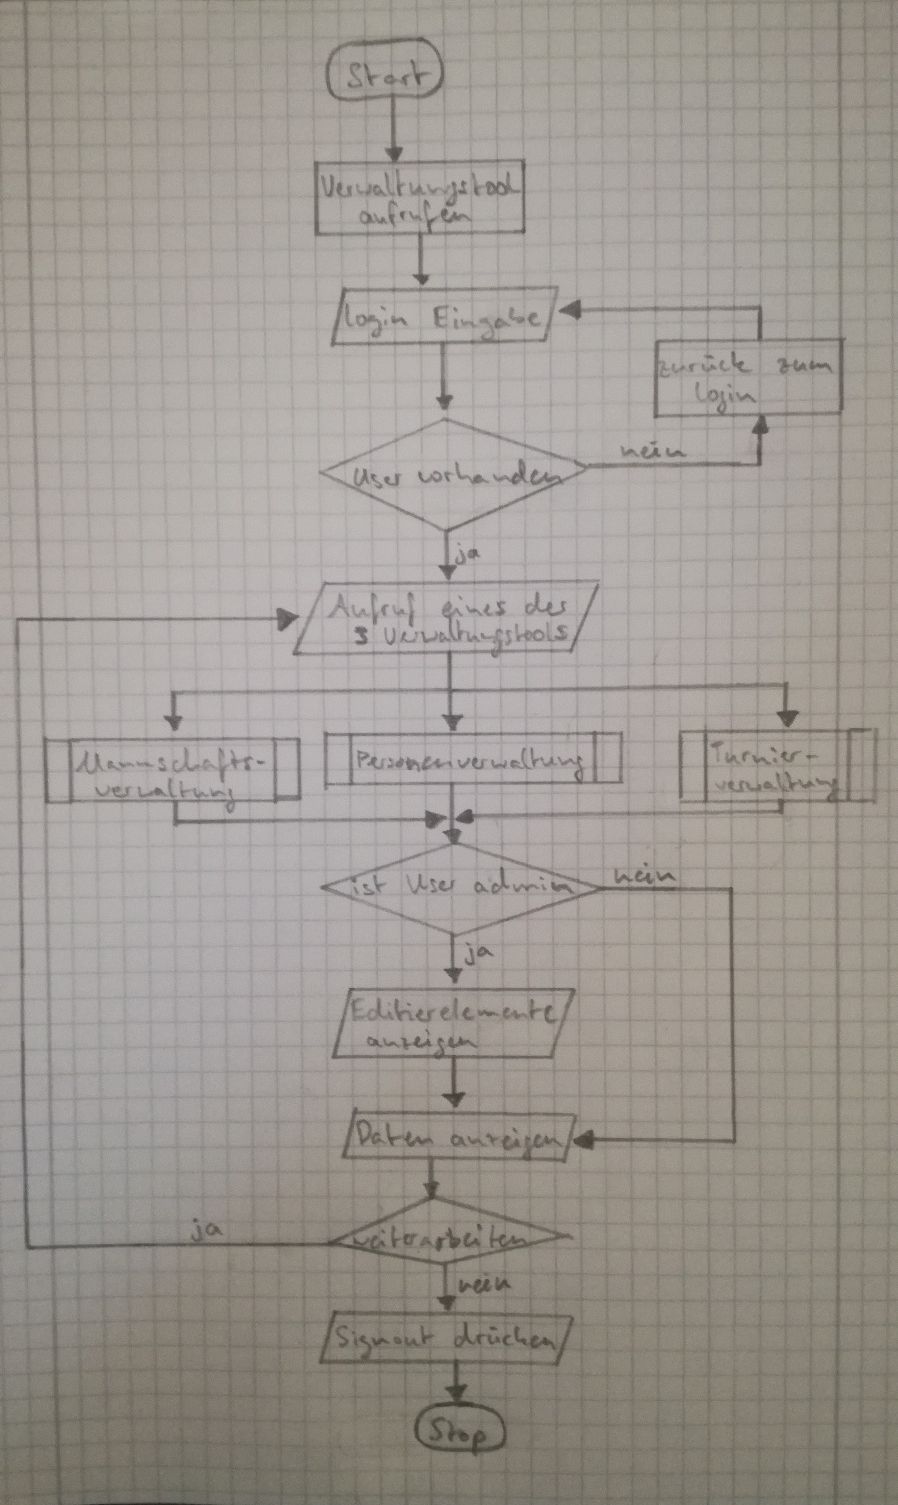 Start
Verwaltungstool
aufrufen
login Eingabe
zurück zum
login
nein
User vorhanden
ja
Aufruf eines der
3 Verwaltungstools
Mannschafts-
verwaltung
Personenverwaltung
Turnier-
verwaltung
ist User admin
nein
ja
Editierelemente
anzeigen
Daten anzeigen
ja
weiterarbeiten
nein
Signout drücken
Stop